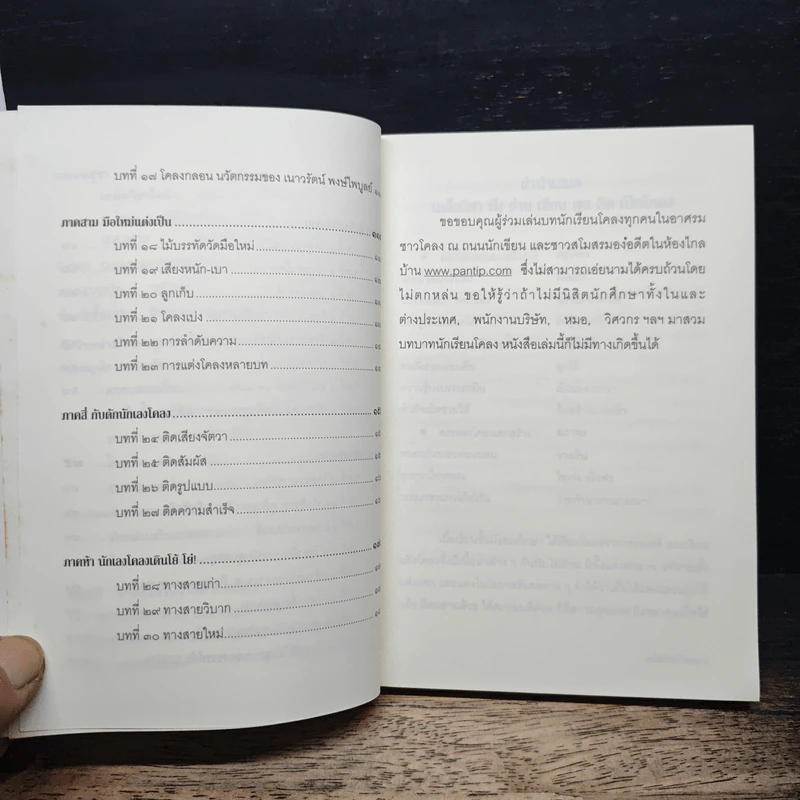 บทที่ ๑๗ โคลงกลอน นวัตกรรมของ เนาวรัตน์ พงษ์ไพบูลย์
ภาคสาม มือใหม่แต่งเป็น
บทที่ ๑๘ ไม้บรรทัดวัดมือใหม่
บทที่ ๑๙ เสียงหนัก-เบา
บทที่ ๒๐ ลูกเก็บ
บทที่ ๒๑ โคลงเบ่ง
บทที่ ๒๒ การลำดับความ
บทที่ ๒๓ การแต่งโคลงหลายบท
ภาคสี่ กับดักนักเลงโคลง
บทที่ ๒๔ ติดเสียงจัตวา
บทที่ ๒๕ ติดสัมผัส
บทที่ ๒๖ ติดรูปแบบ
บทที่ ๒๗ ติดความสำเร็จ
ภาคห้า นักเลงโคลงเดินโย้ โย่!
บทที่ ๒๘ ทางสายเก่า
บทที่ ๒๙ ทางสายวิบาก
บทที่ ๓๐ ทางสายใหม่
ขอขอบคุณผู้ร่วมเล่นบทนักเรียนโคลงทุกคนในอาศรม
ชาวโคลง ณ ถนนนักเขียน และชาวสโมสรมองอดีตในห้องไกล
บ้าน www.pantip.com ซึ่งไม่สามารถเอ่ยนามได้ครบถ้วนโดย
ไม่ตกหล่น ขอให้รู้ว่าถ้าไม่มีนิสิตนักศึกษาทั้งในและ
ต่างประเทศ, พนักงานบริษัท, หมอ, วิศวกร ฯลฯ มาสวม
บทบาทนักเรียนโคลง หนังสือเล่มนี้ก็ไม่มีทางเกิดขึ้นได้